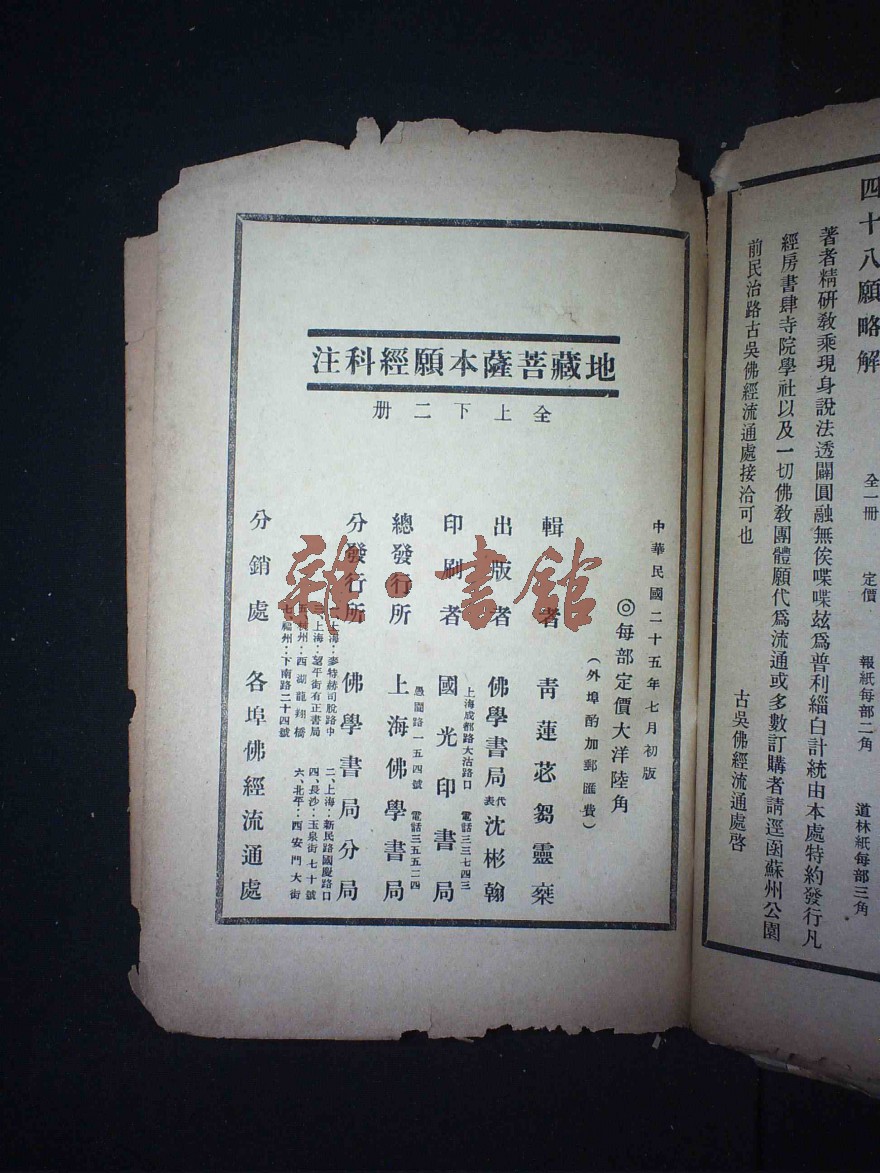 四十八願略解
全一冊　定價　報紙每部二角　道林紙每部三角
著者精研教乘現身說法透闢圓融無俟喋喋玆爲普利緇白計統由本處特約發行凡
經房書肆寺院學社以及一切佛教團體願代爲流通或多數訂購者請逕函蘇州公園
前民治路古吳佛經流通處接洽可也
古吳佛經流通處啓
地藏菩薩本願經科注
全上下二册
中華民國二十五年七月初版
◎每部定價大洋陸角
（外埠酌加郵匯費）
輯者　青蓮苾芻靈椉
出版者　佛學書局代表沈彬翰
印刷者　國光印書局
上海成都路大沽路口　電話三三七四三
總發行所　上海佛學書局
愚園路一五四號　電話三五五二四
分發行所　佛學書局分局
一、上海：麥特赫司脫路中
二、上海：新民路國慶路口
三、上海：望平街有正書局
四、長沙：玉泉街七十號
五、杭州：西湖龍翔橋
六、北平：西安門大街
七、福州：下南路二十四號
分銷處　各埠佛經流通處
雜·書館